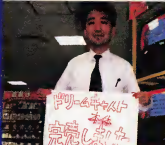 ドリームキャスト
本体
完売しました